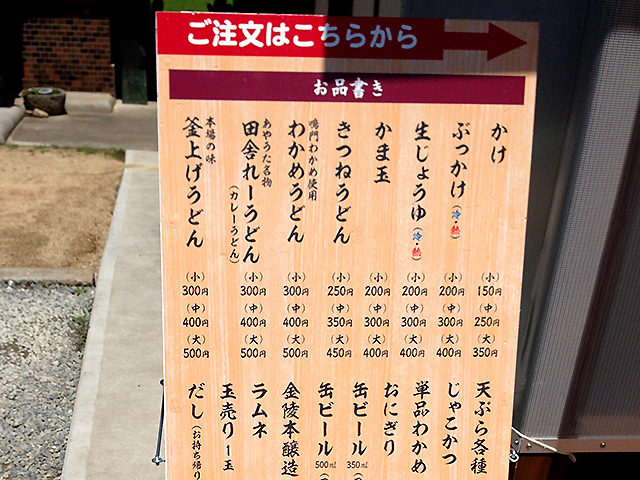 ご注文はこちらから
お品書き
かけ
(小)
150円
(中)
250円
(大)
350円
ぶっかけ(冷・熱)
(小)
200円
(中)
300円
(大)
400円
生じょうゆ(冷・熱)
(小)
200円
(中)
300円
(大)
400円
かま玉
(小)
200円
(中)
300円
(大)
400円
きつねうどん
(小)
250円
(中)
350円
(大)
450円
鳴門わかめ使用
わかめうどん
(小)
300円
(中)
400円
(大)
500円
あやうた名物
田舎れーうどん
(カレーうどん)
(小)
300円
(中)
400円
(大)
500円
本場の味
釜上げうどん
(小)
300円
(中)
400円
(大)
500円
天ぷら各種
じゃこかつ
単品わかめ
おにぎり
缶ビール 350ml
缶ビール 500ml
金陵本醸造
ラムネ
玉売り1玉
だし(お持ち帰り